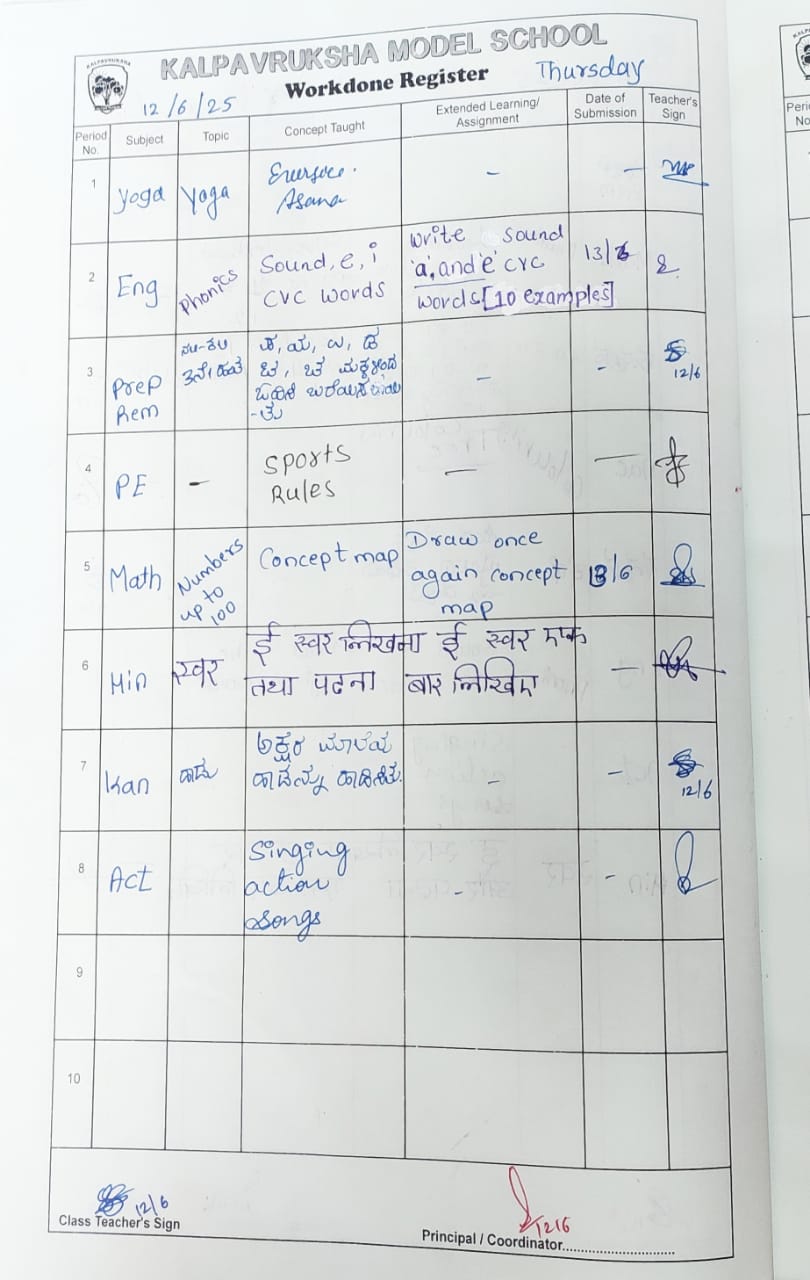 KALPAVRUKSHA MODEL SCHOOL
Workdone Register
Thursday
12/6/25
Period No. Subject Topic Concept Taught Extended Learning/ Assignment Date of Submission Teacher's Sign
1 Yoga Yoga
Asana - -
2 Eng Phonics Sound, e, i
CVC words
write sound
'a', and 'e' CVC
words [10 examples]
13/6
3 Prep
Rem
ನಲಿ-ಕಲಿ
3ನೇ ಹಂತ
- -
12/6
4 PE - Sports
Rules
- -
5 Math Numbers
up to
100
Concept map
Draw once
again concept
map
13/6
6 Hin स्वर
ई स्वर लिखना
तथा पढना
ई स्वर एक
बार लिखिए
-
7 Kan ಹಾಡು
ಅಕ್ಷರ ಮಾಲೆಯ
- -
12/6
8 Act Singing
action
songs
- -
9
10
12/6
Class Teacher's Sign
12/6
Principal / Coordinator